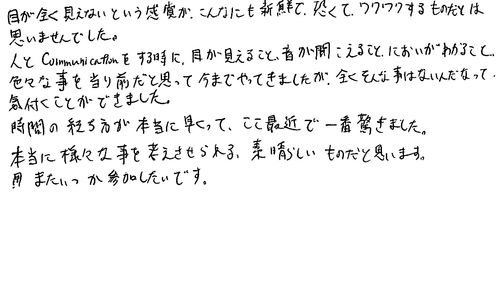 目が全く見えないという感覚が、こんなにも新鮮で、恐くて、ワクワクするものだとは
思いませんでした。
人とCommunicationをする時に、目が見えること、音が聞こえること、においがわかること、
色々な事を当り前だと思って今までやってきましたが、全くそんな事はないんだなって
気付くことができました。
時間の経ち方が本当に早くって、ここ最近で一番驚きました。
本当に様々な事を考えさせられる、素晴らしいものだと思います。
またいつか参加したいです。